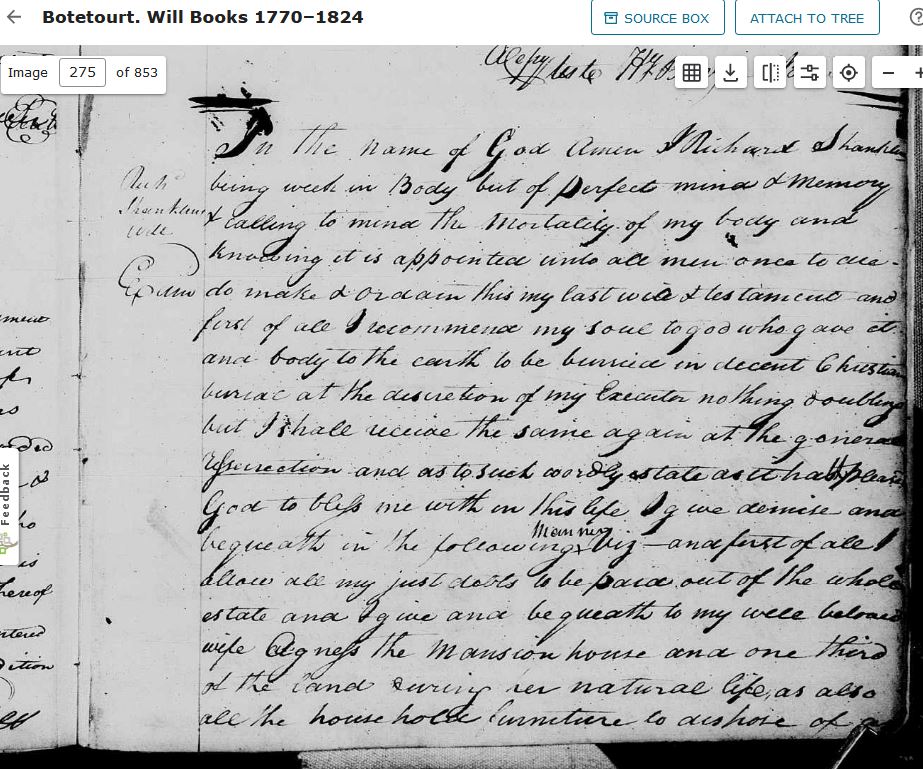 Botetourt. Will Books 1770–1824
SOURCE BOX
ATTACH TO TREE
Image 275 of 853
A Copy Teste
In the name of God Amen I Richard Shankl
being week in Body but of perfect mind & Memory
& calling to mind the Mortality of my body and
knowing it is appointed unto all men once to die -
do make & ordain this my last will & testament and
first of all I recommend my soul to god who gave it
and body to the earth to be burried in decent Christian
burial at the discretion of my Executor nothing doubting
but I shall receive the same again at the general
Resurrection and as to such wordly estate as it hath pleas
God to bless me with in this life I give demise and
Manner
bequeath in the following viz - and first of all I
allow all my just debts to be paid out of the whole
estate and I give and bequeath to my well beloved
wife Agness the Mansion house and one third
of the land during her natural life, as also
all the household furniture to dispose of as
Richd
Shanklins
will
Exam
ment
ded
hereof
ntered
dition
Feedback